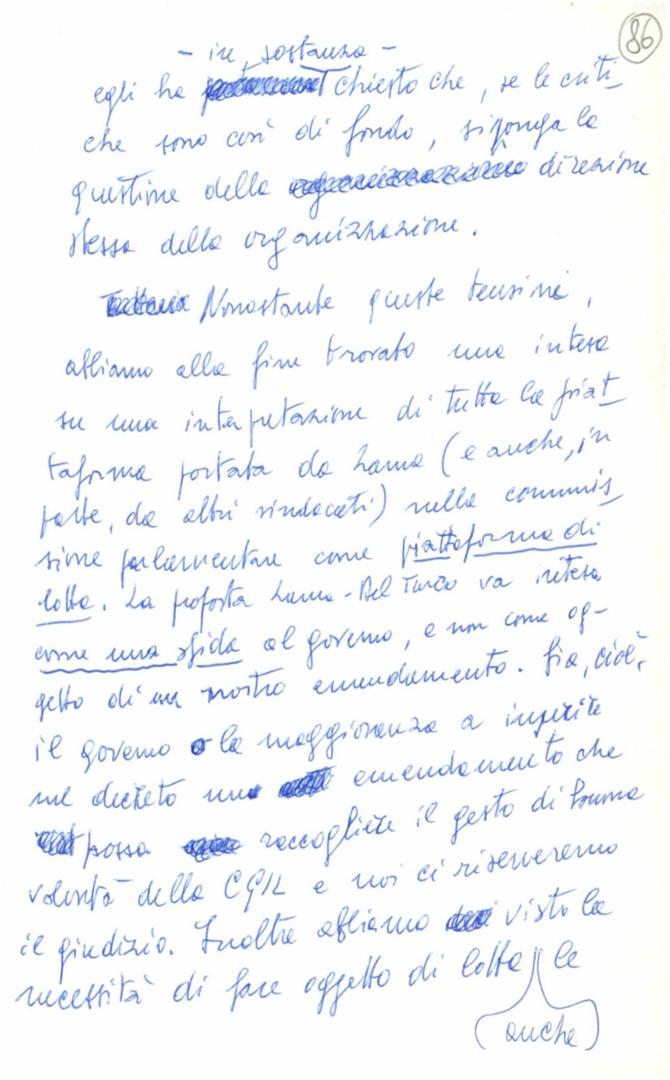 86
- in sostanza -
egli ha chiesto che, se le criti_
che sono così di fondo, si ponga la
questione della direzione
stessa della organizzazione.
Nonostante queste tensioni,
abbiamo alla fine trovato una intesa
su una interpretazione di tutta la piat_
taforma portata da Lama (e anche, in
parte, da altri sindacati) nella commis_
sione parlamentare come piattaforma di
lotta. La proposta Lama-Del Turco va intesa
come una sfida al governo, e non come og-
getto di un nostro emendamento. Sia, cioè,
il governo o la maggioranza a inserire
nel decreto un emendamento che
possa raccogliere il gesto di buona
volontà della CGIL e noi ci riserveremo
il giudizio. Inoltre abbiamo visto la
necessità di fare oggetto di lotta le
(anche)